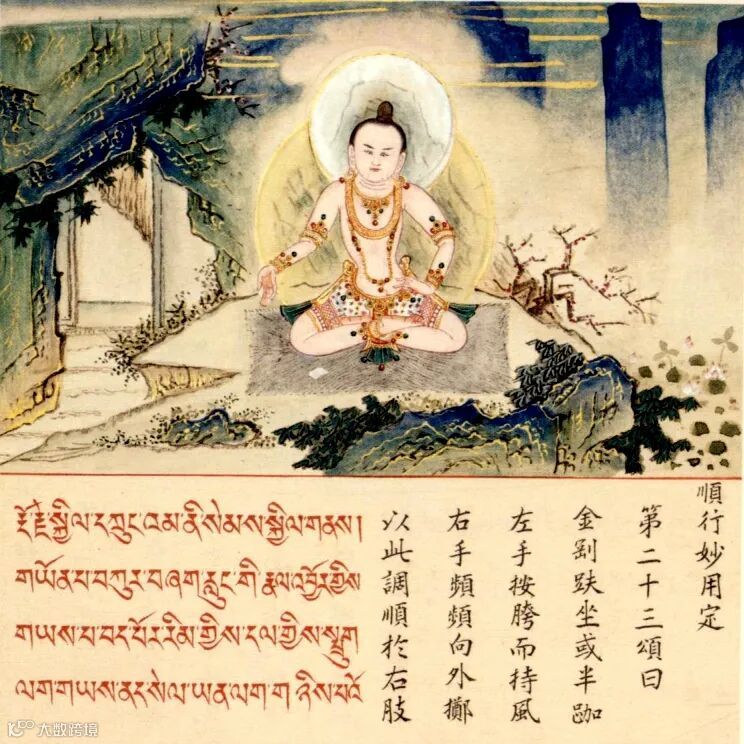 順行妙用定
第二十三頌曰
金剛趺坐或半跏
左手按胯而持風
右手頻頻向外擲
以此調順於右肢
རྡོ་རྗེ་སྐྱིལ་དཀྲུང་འམ་ནི་སེམས་སྐྱིལ་གནས།
གཡོན་པ་བཀུར་བཞག་རླུང་གི་རྣལ་འབྱོར་གྱིས
གཡས་པ་བད་པོར་རིམ་གྱིས་དལ་གྱིས་སྤྲུག
ལག་གཡས་ནད་སེལ་ཡན་ལག་ག་ཉིས་པའོ
大数跨境